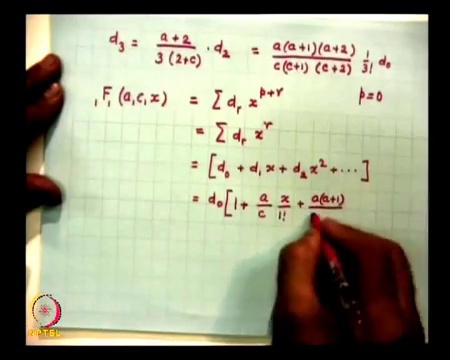 d₃ = a+2 / 3(2+c) · d₂ = a(a+1)(a+2) / c(c+1)(c+2) 1/3! d₀
₁F₁(a,c,x) = Σ dᵣ x^(p+r) p=0
= Σ dᵣ x^r
= [d₀ + d₁x + d₂x² + ····]
= d₀[1 + a/c x/1! + a(a+1)/
NPTEL